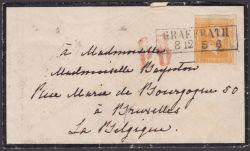 GRAEFRATH
8 12 5-6
à Mademoiselle
Mademoiselle
Rue Marie de Bourgogne 50
à Bruxelles
La Belgique.